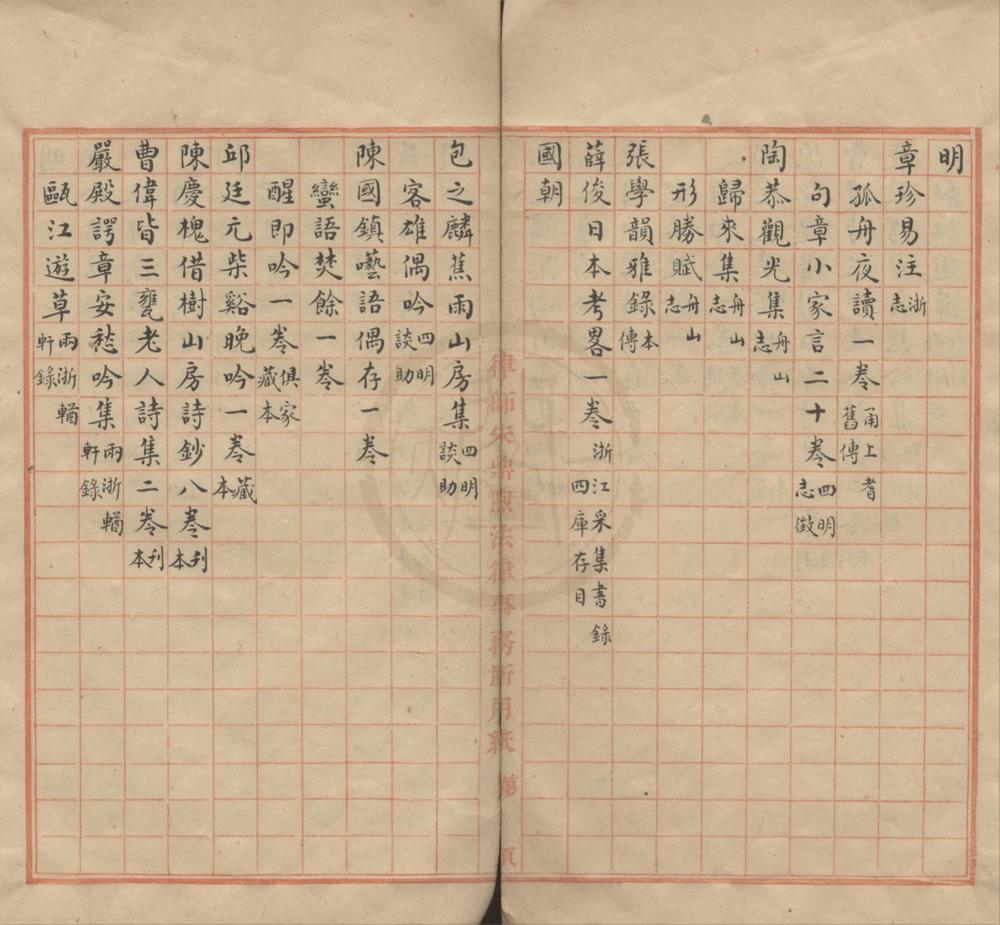 明
章珍易注浙志
孤舟夜讀一卷甬上耆舊傳
句章小家言二十卷四明志徵
陶恭觀光集舟山志
歸來集舟山志
形勝賦舟山志
張學韻雅錄本傳
薛俊日本考畧一卷浙江采集書錄四庫存目
國朝
律師朱鼎煦法律事務所用紙 第 頁
包之麟蕉雨山房集四明談助
客雄偶吟四明談助
陳國鎮囈語偶存一卷
蠻語焚餘一卷
醒即吟一卷俱家藏本
邱廷元柴谿晚吟一卷藏本
陳慶槐借樹山房詩鈔八卷刊本
曹偉皆三甕老人詩集二卷刊本
嚴殿諤章安愁吟集兩浙輶軒錄
甌江遊草兩浙輶軒錄